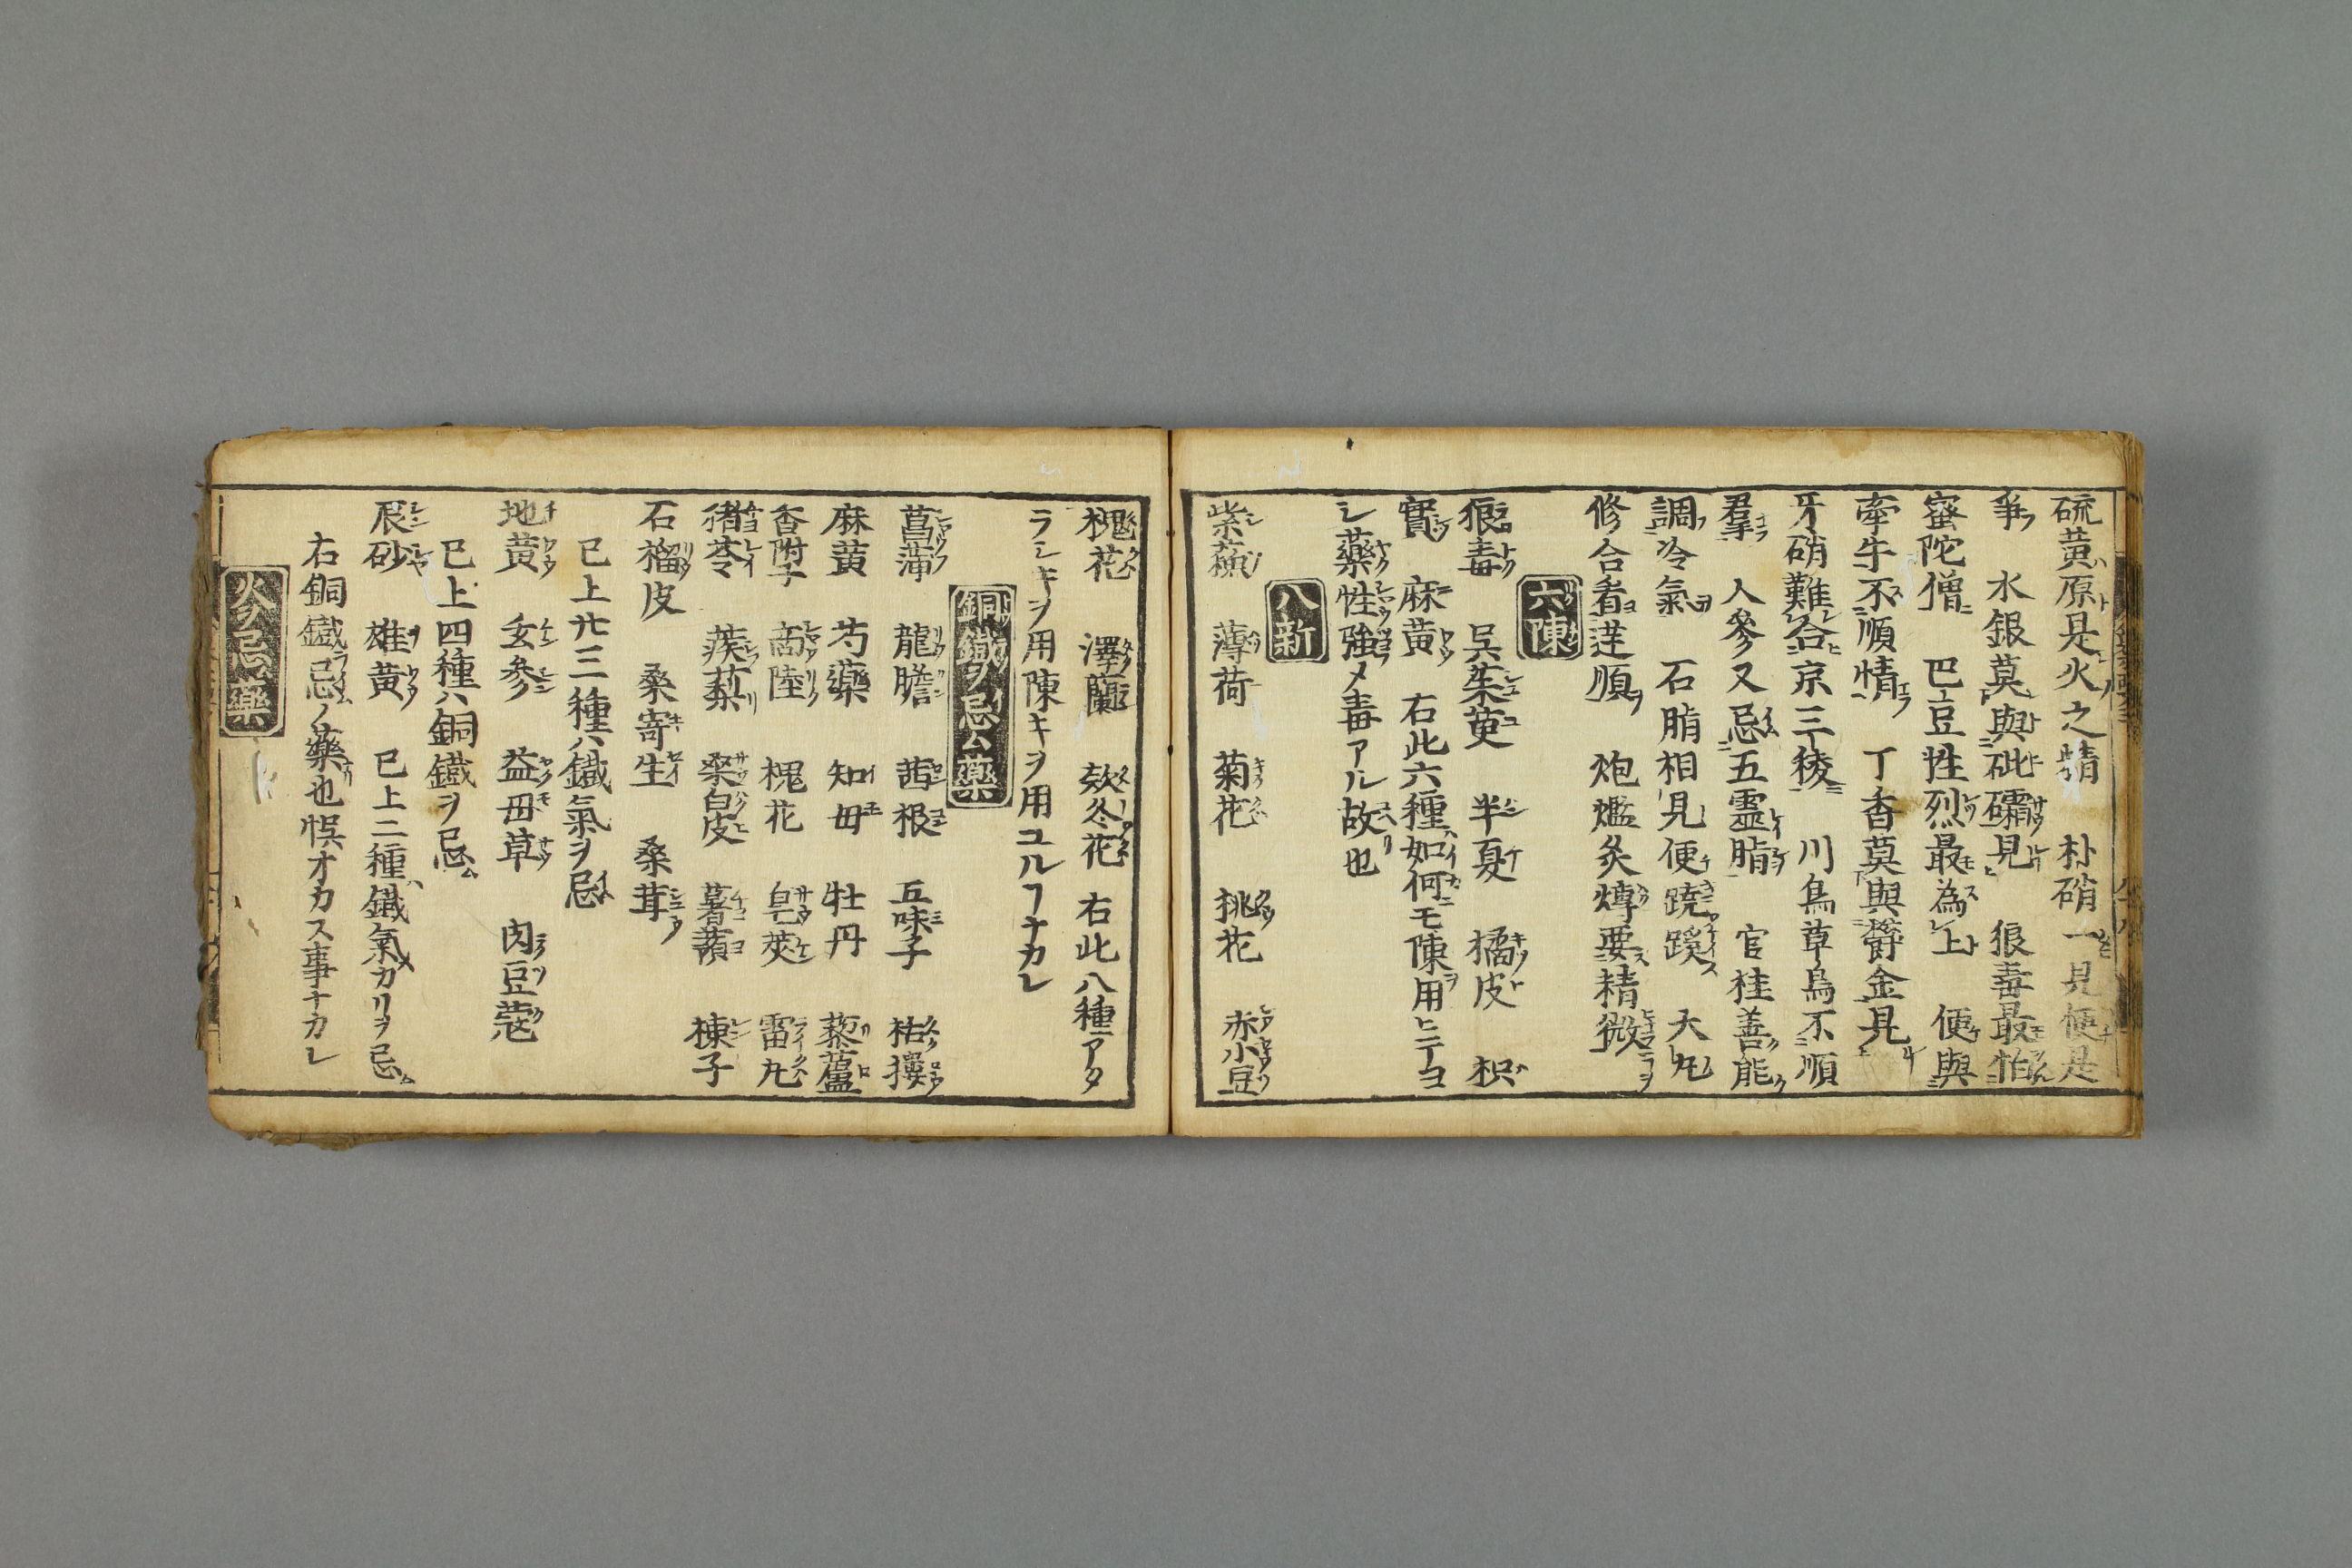 硫黄原是火之精 朴硝一見便是
爭 水銀莫與砒礵見 狼毒最怕
蜜陀僧 巴豆性烈最為上 便與
牽牛不順情 丁香莫與欝金見
牙硝難合京三稜 川烏草烏不順
羣 人參又忌五霊脂 官桂善能
調冷氣 石脂相見便蹺蹊 大凡
修合看逆順 炮爁炙煿要精微
六陳
狼毒 呉茱萸 半夏 橘皮 枳
實 麻黄 右此六種ハ如何ニモ陳用ヒニテヨ
シ藥性強メ毒アル故也
八新
紫蘓 薄荷 菊花 桃花 赤小豆
槐花 澤蘭 欵冬花 右此八種アタ
ラシキヲ用陳キヲ用ユルヿナカレ
銅鐵ヲ忌ム藥
菖蒲 龍膽 茜根 五味子 栝摟
麻黄 芍藥 知母 牡丹 藜蘆
香附子 商陸 槐花 皂莢 雷丸
猪苓 蒺䔧 桒白皮 薯蕷 楝子
石榴皮 桑寄生 桑茸
已上廿三種ハ鐵氣ヲ忌
地黄 玄參 益母草 肉豆蔲
已上四種ハ銅鐵ヲ忌ム
辰砂 雄黄 已上二種ハ鐵氣カリヲ忌ム
右銅鐵忌ノ藥也悞オカス事ナカレ
火ヲ忌ム藥